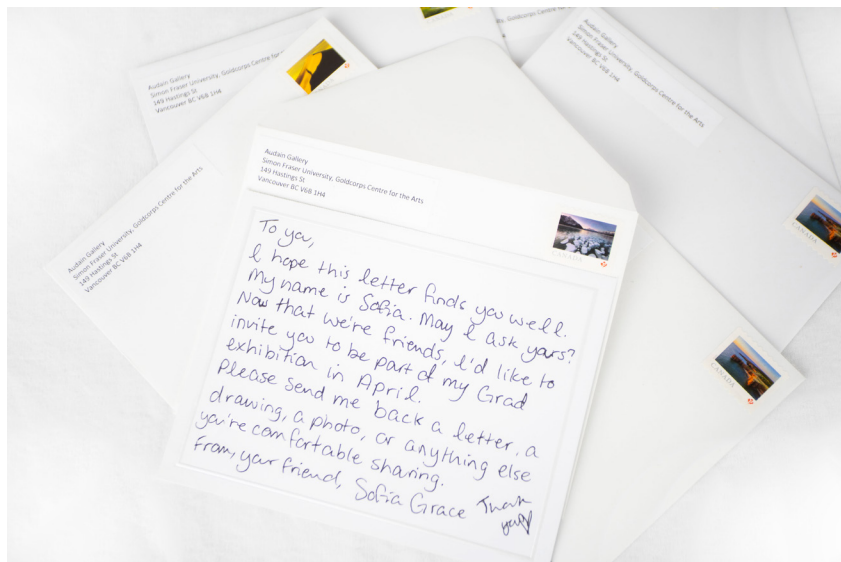 Audain Gallery
Simon Fraser University, Goldcorps Centre for the Arts
149 Hastings St
Vancouver BC V6B 1H4
Audain Gallery
Simon Fraser University, Goldcorps Centre for the Arts
149 Hastings St
Vancouver BC V6B 1H4
Goldcorps Centre for the
Audain Gallery
Simon Fraser University, Goldcorps Centre for
149 Hastings St
Vancouver BC V6B 1H4
Audain Gallery
Simon Fraser University, Goldcorps Centre for the Arts
149 Hastings St
Vancouver BC V6B 1H4
CANADA
CANADA
CANADA
To you,
I hope this letter finds you well.
My name is Sofia. May I ask yours?
Now that we're friends, I'd like to
invite you to be part of my Grad
exhibition in April.
Please send me back a letter, a
drawing, a photo, or anything else
you're comfortable sharing.
From, your friend, Sofia Grace
Thank
you